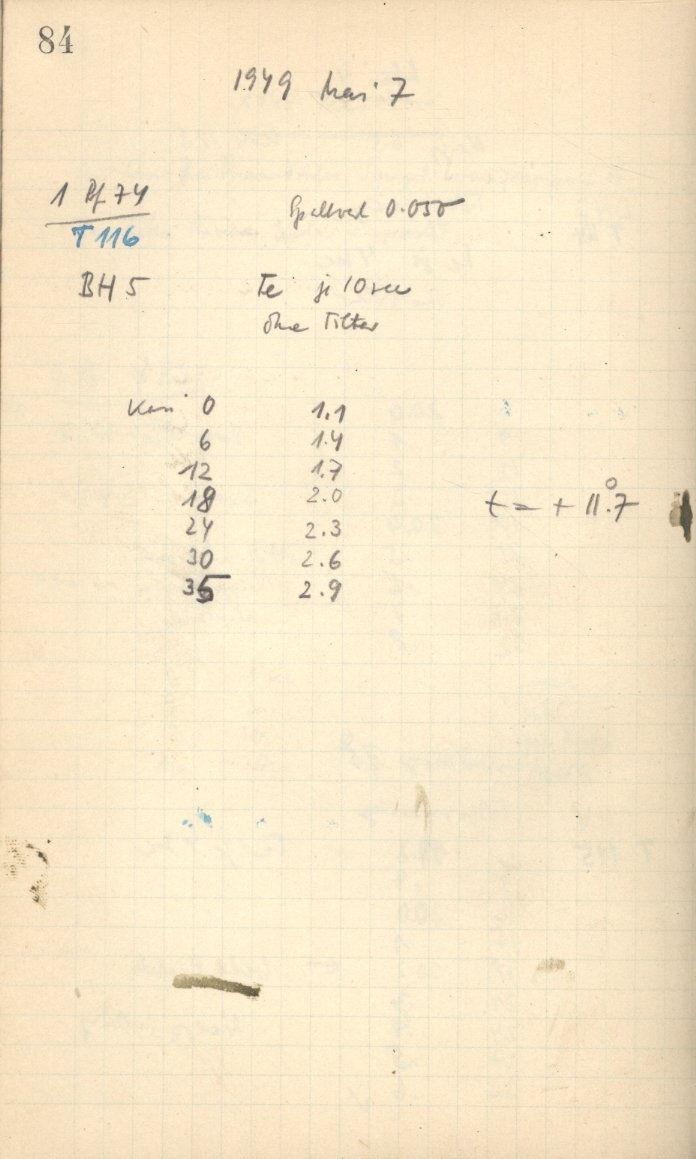 84
1949 Mai 7
1 Pf 74
T 116
Spaltverb 0.050
BH 5
Te je 10 sec
ohne Filter
Kass 0 1.1
6 1.4
12 1.7
18 2.0
24 2.3
30 2.6
35 2.9
t = + 11°.7